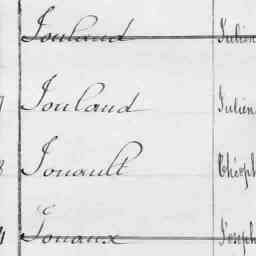 Jouland Julien
Jouland Julien
Jouault Théoph
Jouaux Joseph